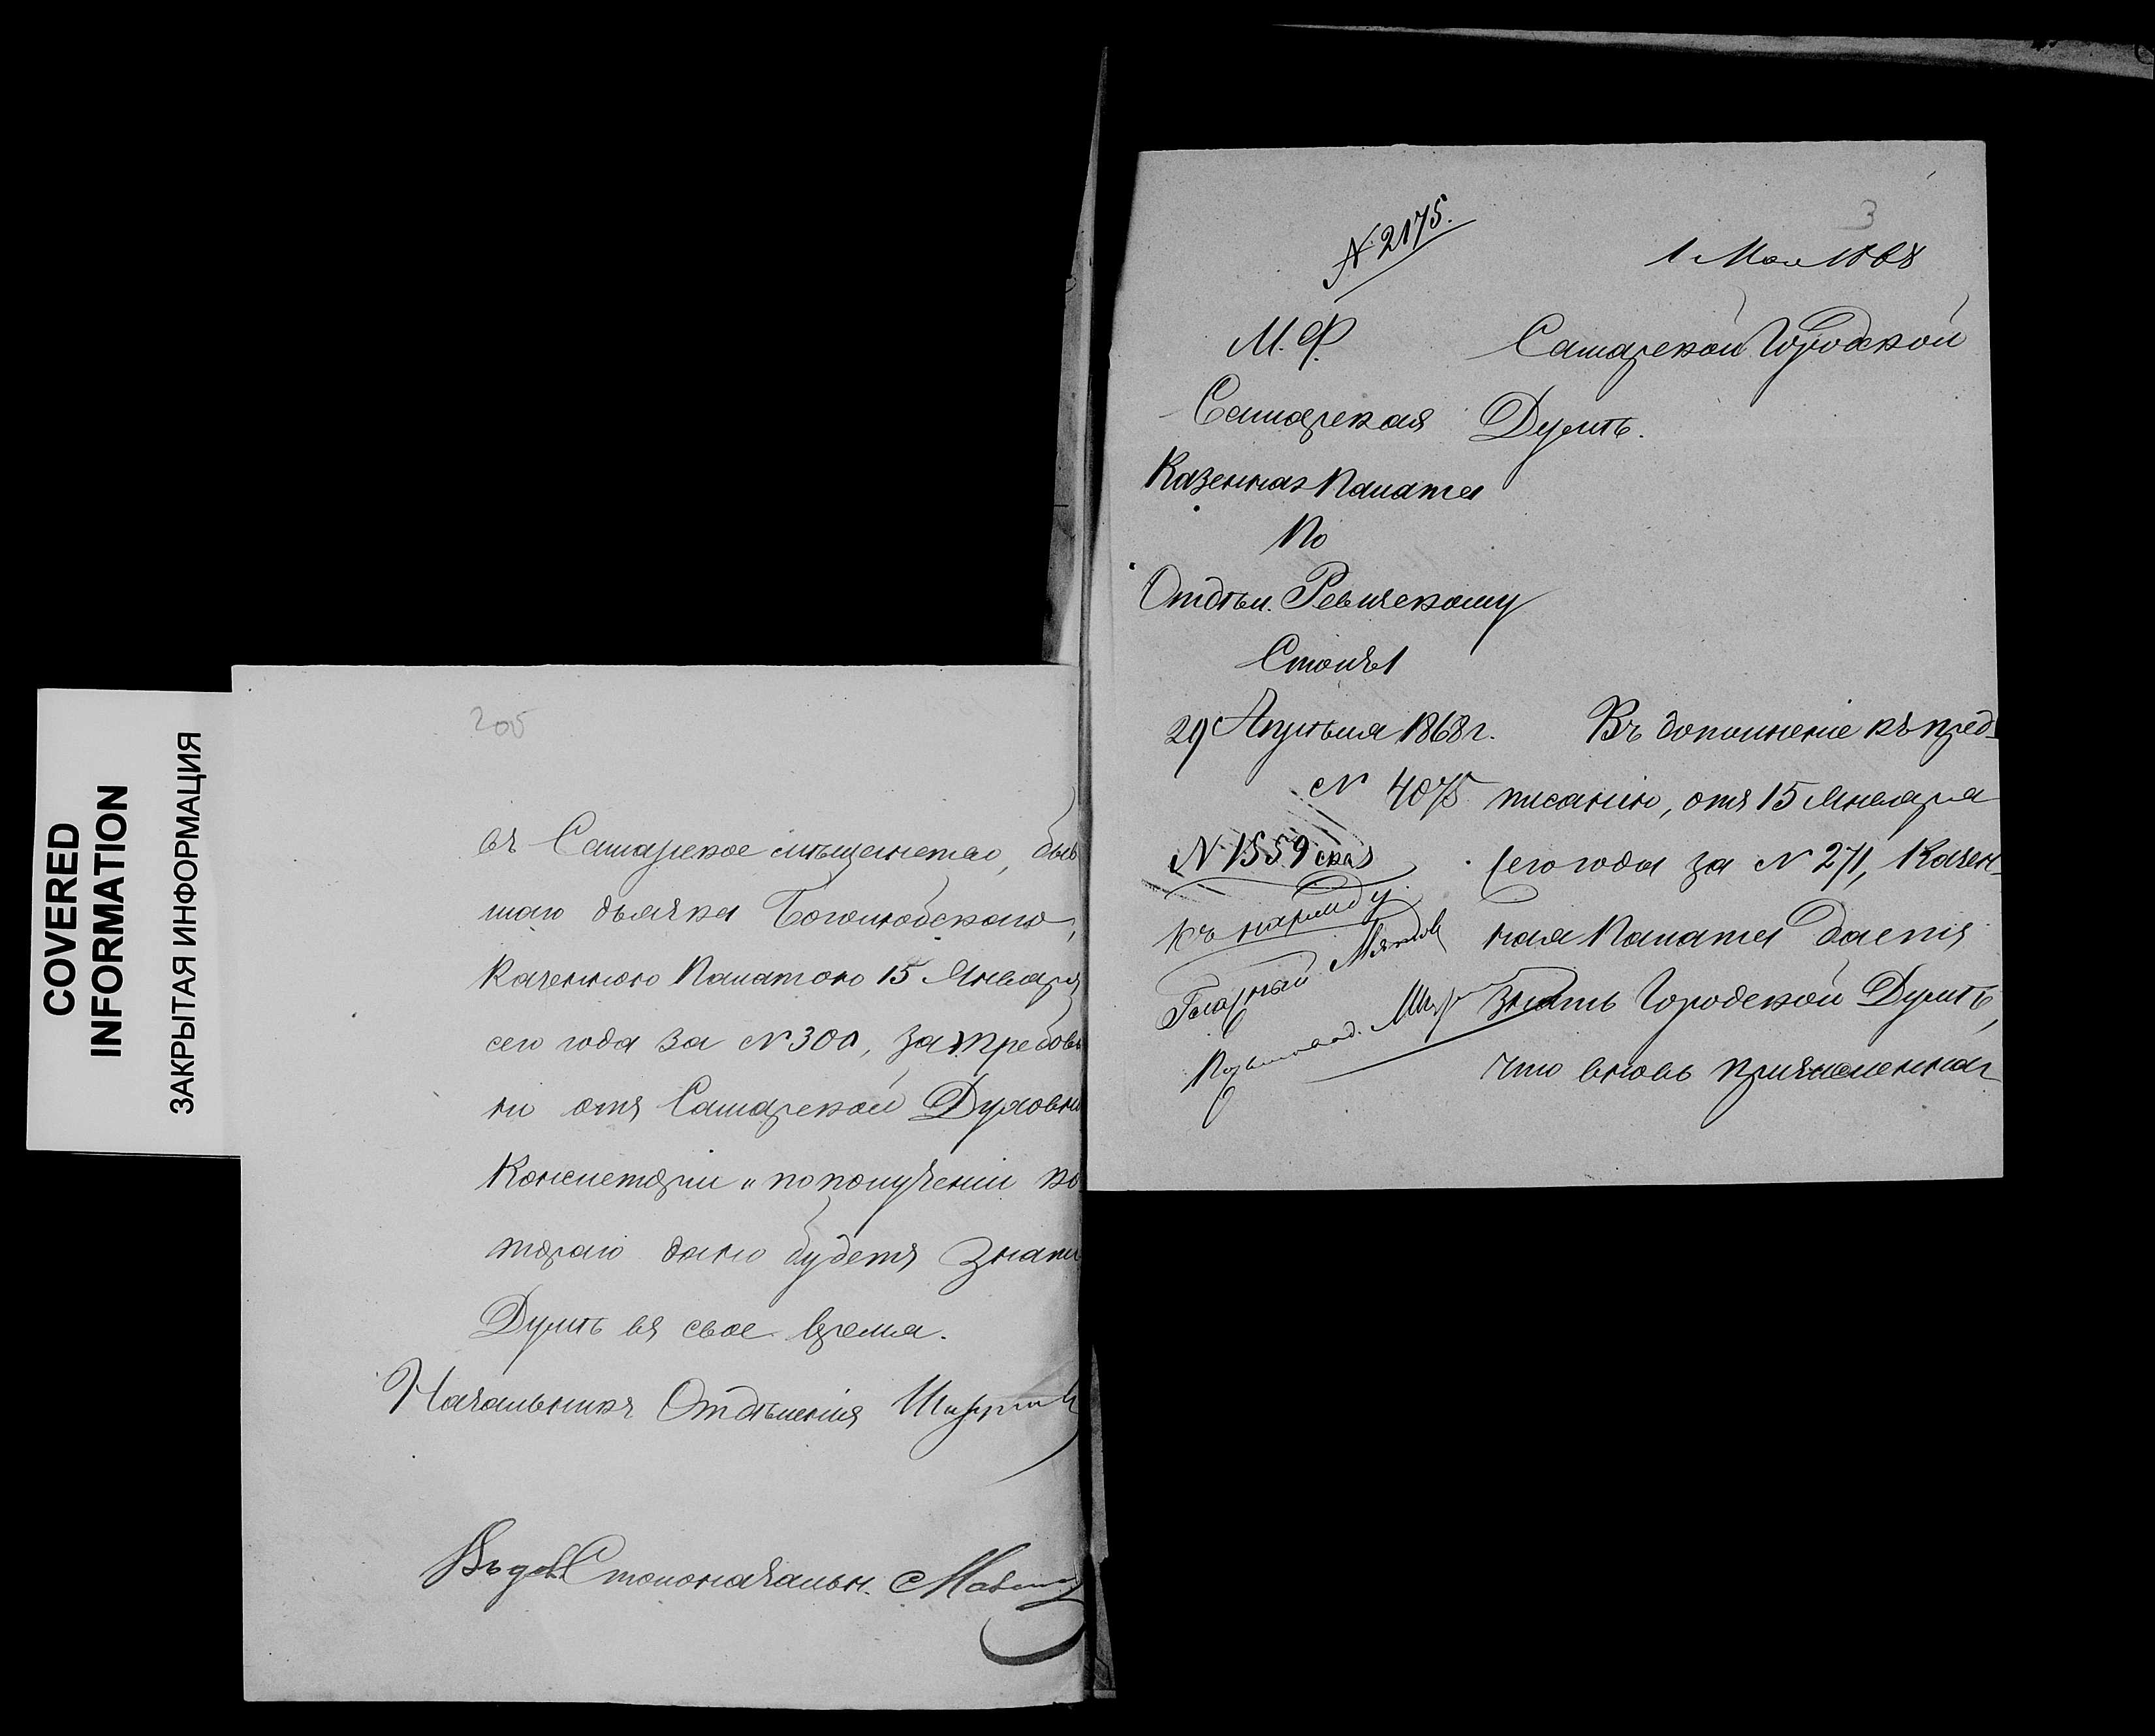 COVERED
INFORMATION
ЗАКРЫТАЯ ИНФОРМАЦИЯ
205
въ Самарское мѣщанство, быв
шаго дьячка Боголюбскаго,
Казенною Палатою 15 Января
сего года за № 300, затребова
ны отъ Самарской Духовной
Консисторіи и по полученіи ко
тораго дано будетъ знать
Думѣ въ свое время.
Начальникъ Отдѣленія
Столоначальн.
3
№ 2175.
1 Мая 1868
М. Ф.
Самарская
Казенная Палата
По
Отдѣл. Ревизскому
Столъ 1
29 Апрѣля 1868 г.
№ 4075
№ 1559
къ наряду
Гласный
Самарской Городской
Думѣ.
Въ дополненіе къ пред-
писанію, отъ 15 Января
сего года за № 271, Казен-
ная Палата даетъ
знать Городской Думѣ,
что вновь причисленная